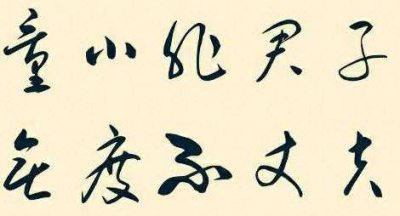 量小非君子
無度不丈夫